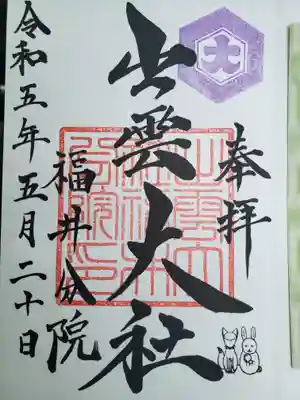 奉拝
出雲大社
福井分院
令和五年五月二十日
大